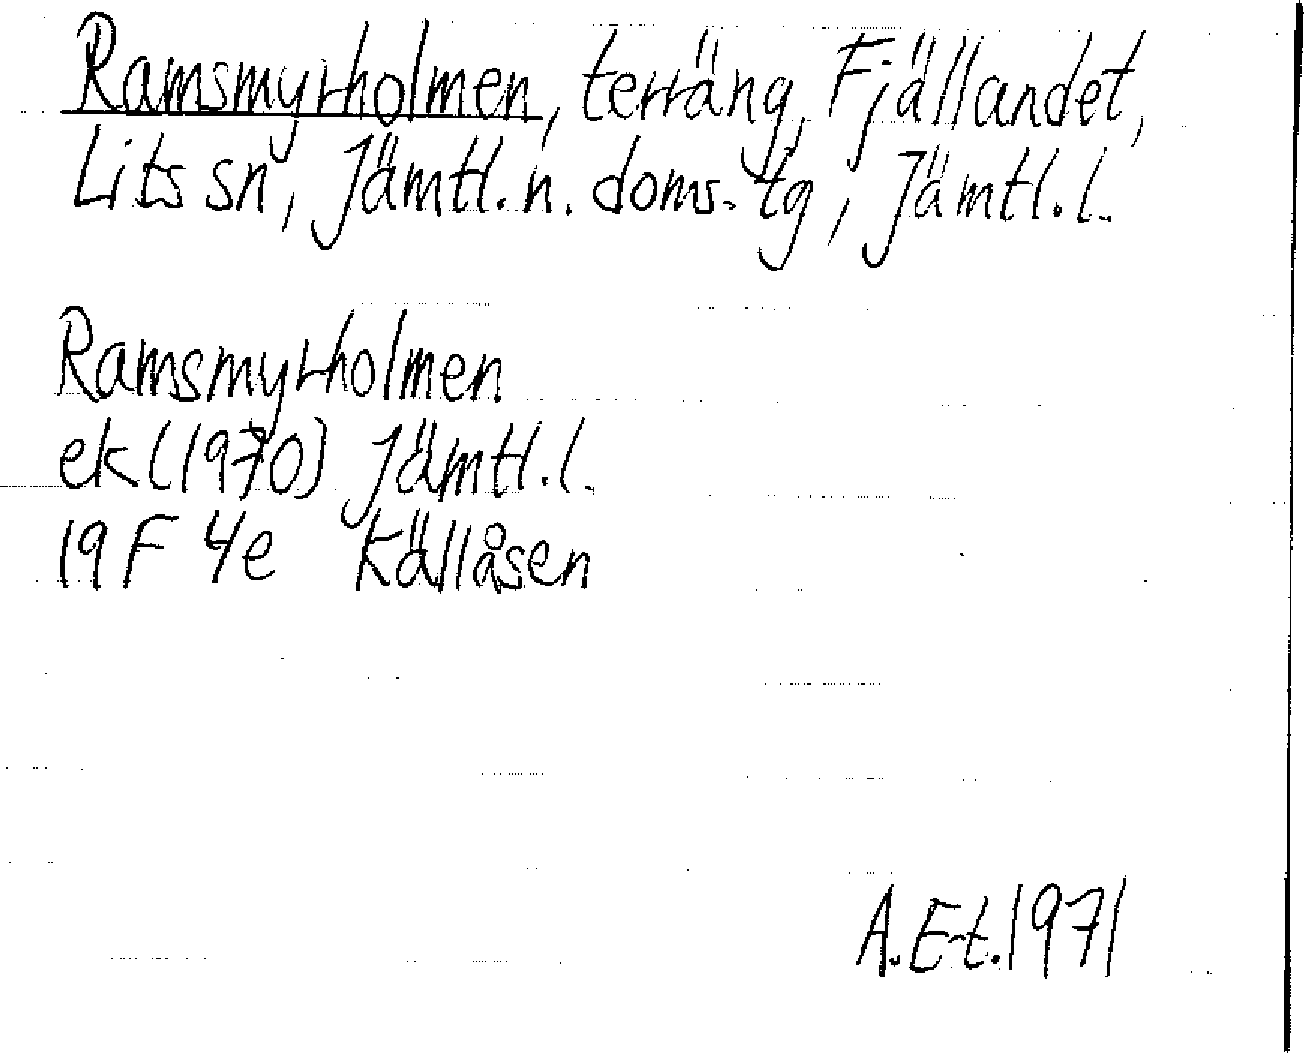 Ramsmyrholmen, terräng, Fjällandet,
Lits sn, Jämtl. n. doms. tg, Jämtl. l.
Ramsmyrholmen
ek (1970) Jämtl. l.
19 F 4e Källåsen
A. E-t. 1971